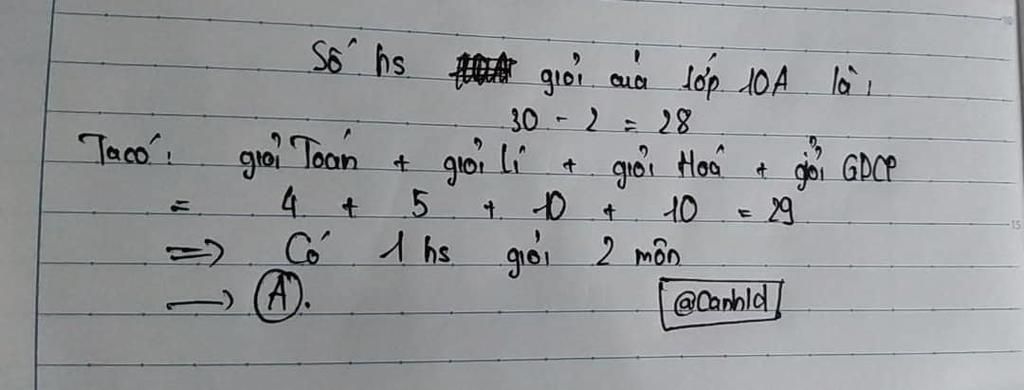 Số hs giỏi của lớp 10A là:
30 - 2 = 28
Ta có: giỏi Toán + giỏi Lí + giỏi Hoá + giỏi GDCP
= 4 + 5 + 10 + 10 = 29
=> Có 1 hs giỏi 2 môn
→ A.
@Canhld